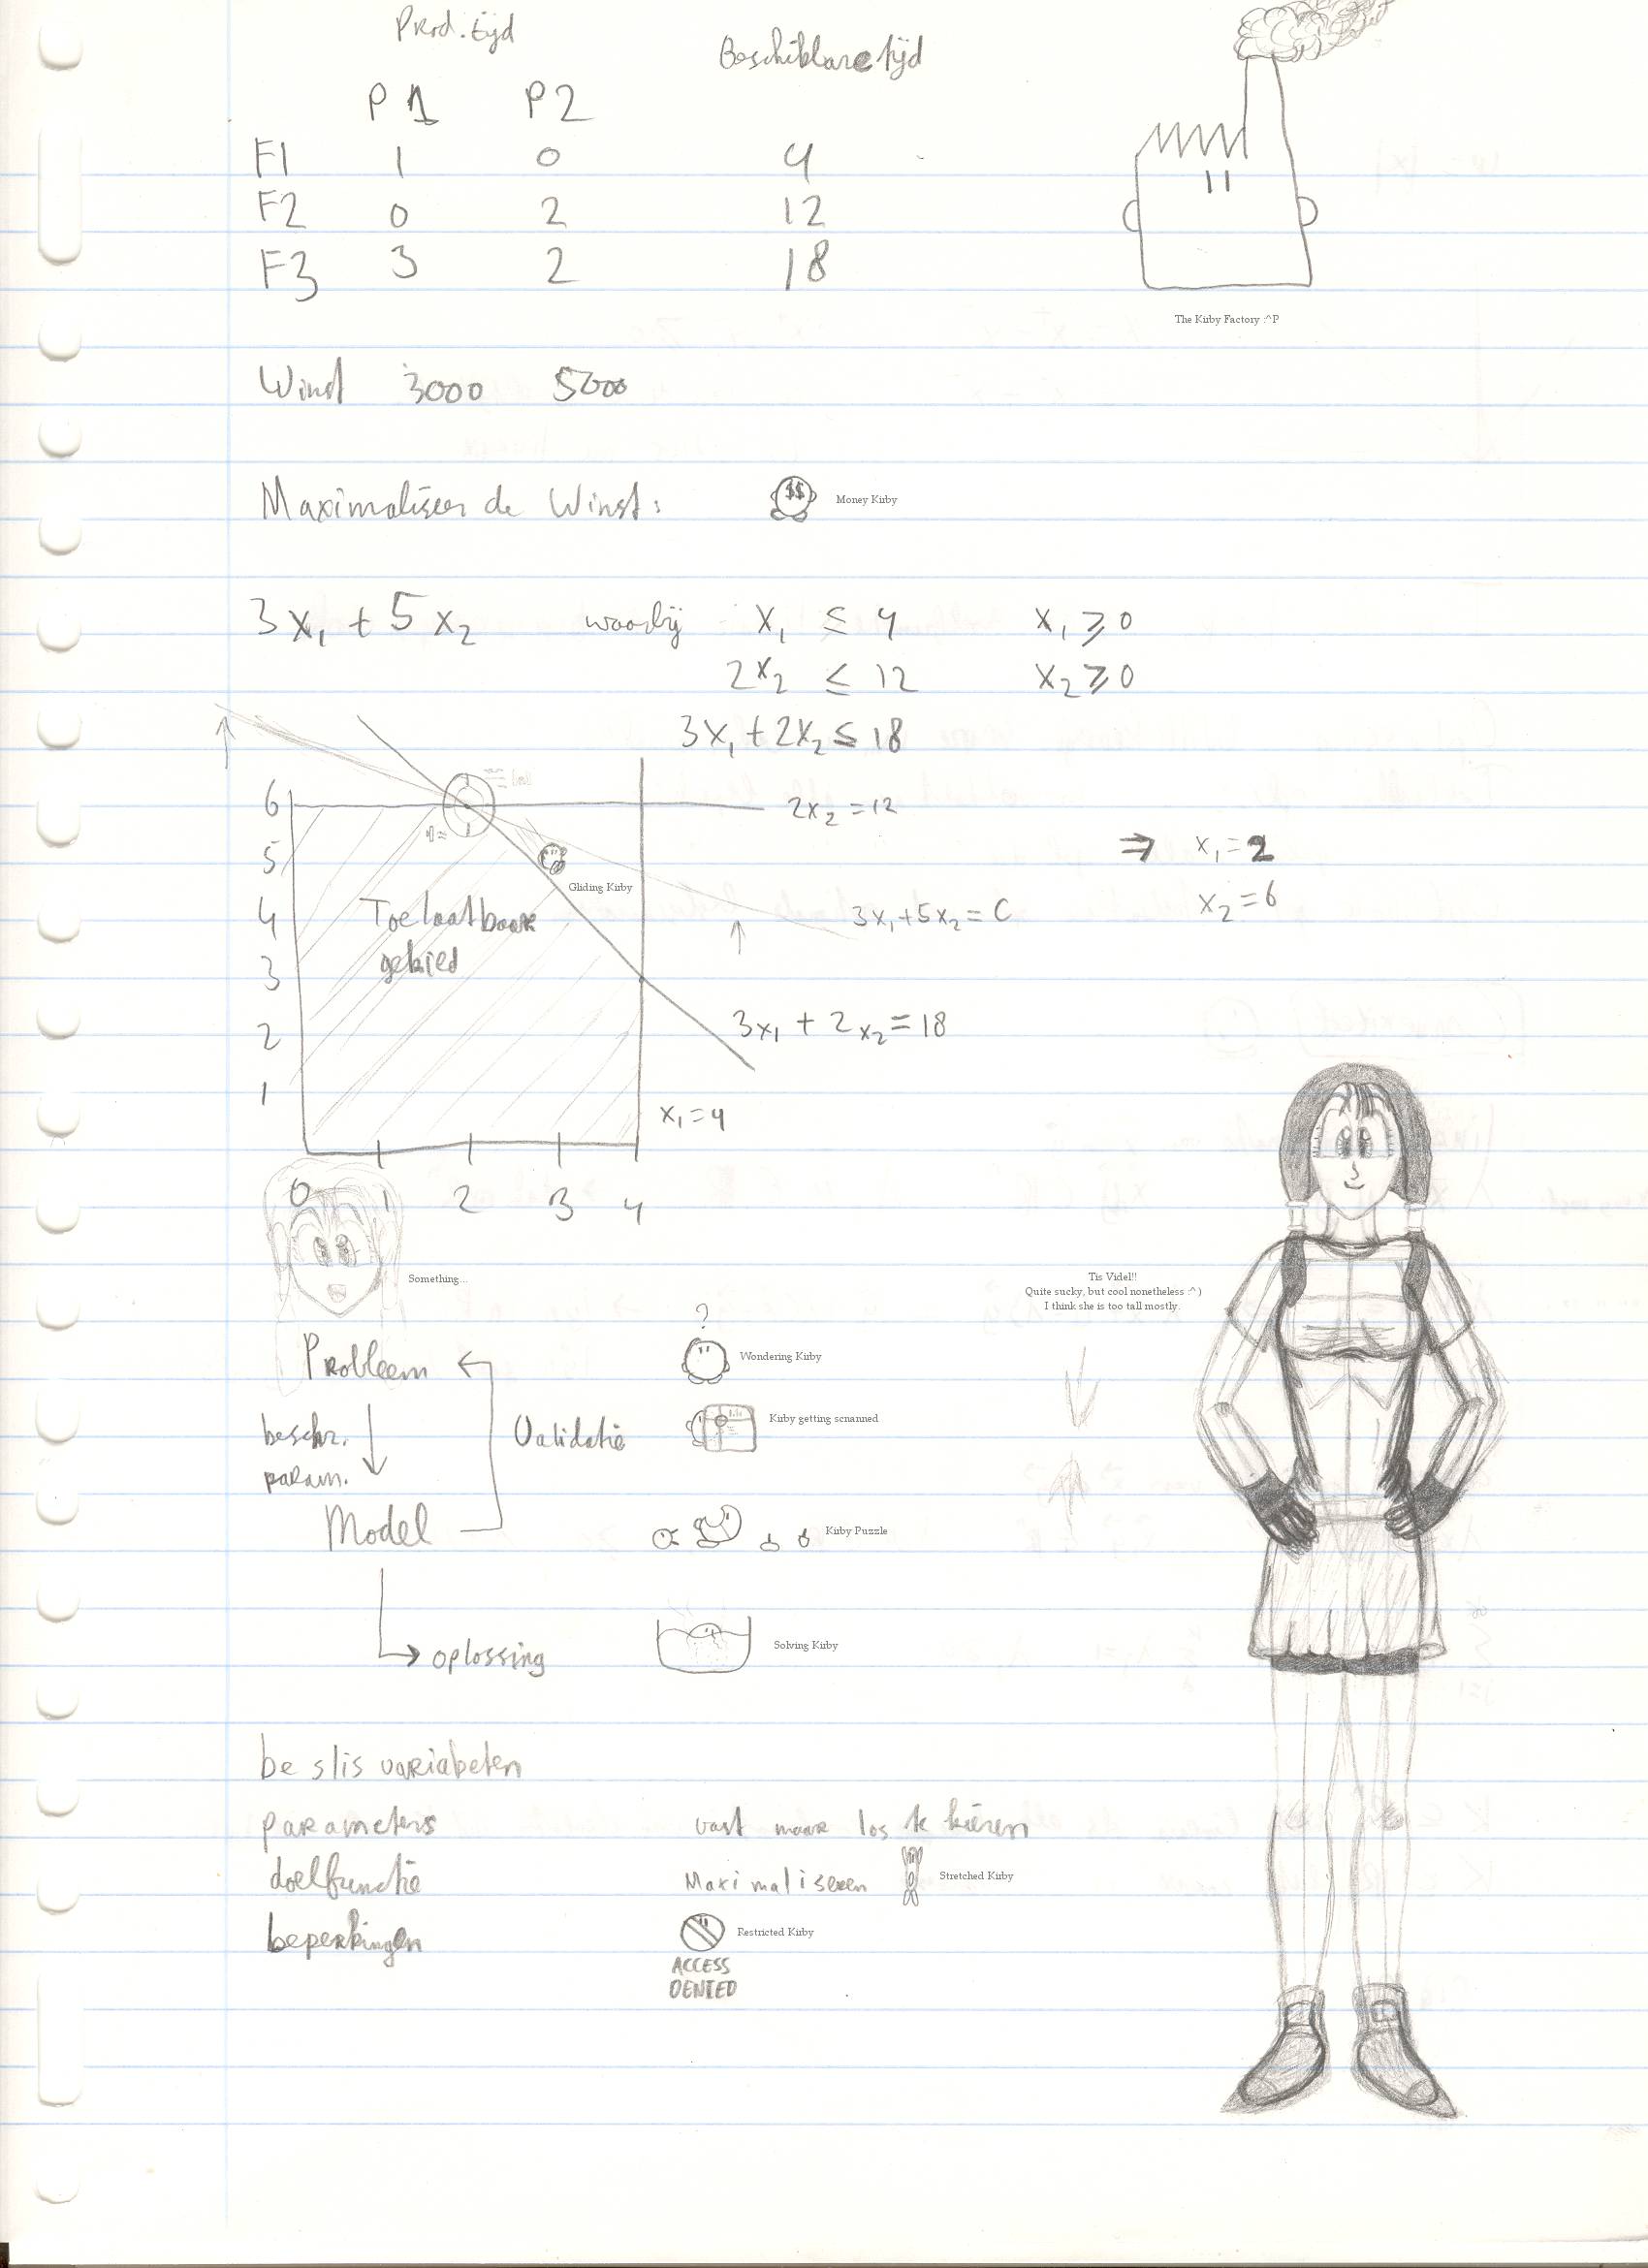 Prod. tijd
Beschikbare tijd
P1 P2
F1 1 0 4
F2 0 2 12
F3 3 2 18
The Kirby Factory :^P
Winst 3000 5000
Maximaliseer de Winst:
$$
Money Kirby
3x₁ + 5x₂ waarbij x₁ ≤ 4 x₁ ≥ 0
2x₂ ≤ 12 x₂ ≥ 0
3x₁ + 2x₂ ≤ 18
6
2x₂ = 12
5
Gliding Kirby
⇒ x₁ = 2
x₂ = 6
4
Toelaatbaar
gebied
3x₁ + 5x₂ = C
3
3x₁ + 2x₂ = 18
2
1
x₁ = 4
0 1 2 3 4
Something...
Tis Videl!!
Quite sucky, but cool nonetheless :^)
I think she is too tall mostly.
?
Probleem
Wondering Kirby
beschr.
param.
Validatie
Kirby getting scnanned
Model
Kirby Puzzle
oplossing
Solving Kirby
beslis variabelen
parameters vast maar los te kiezen
doelfunctie Maximaliseren
Stretched Kirby
beperkingen
Restricted Kirby
ACCESS
DENIED